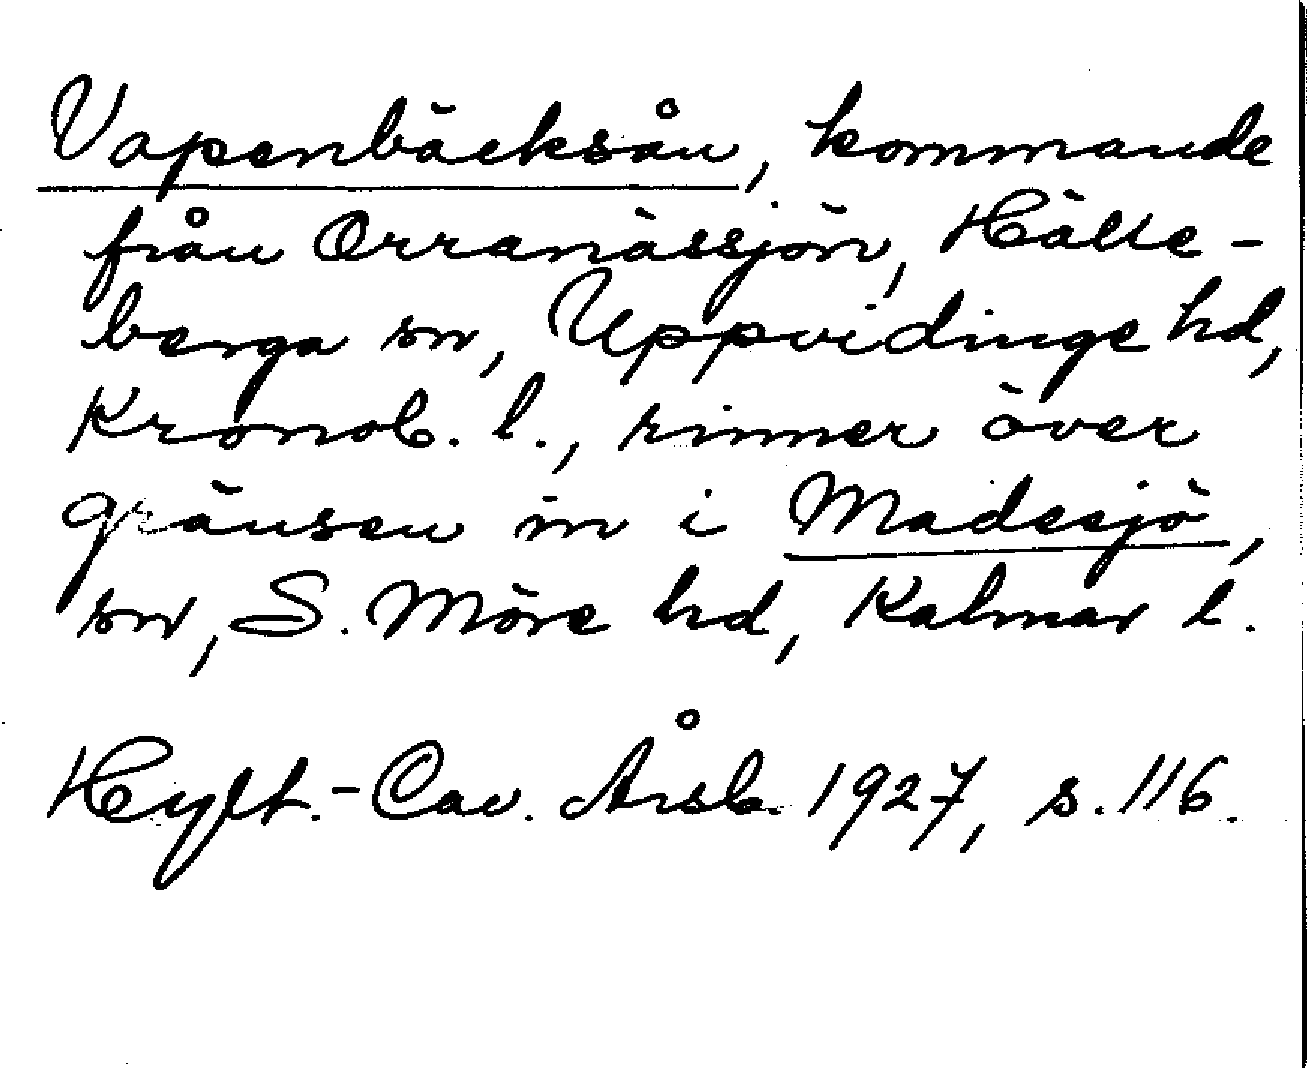 Vapenbäcksån, kommande
från Orranässjön, Hälle-
berga sn, Uppvidinge hd,
Kronob. l., rinner över
gränsen in i Madesjö,
sn, S. Möre hd, Kalmar l.
Hylt.-Cav. Årsb. 1927, s. 116.